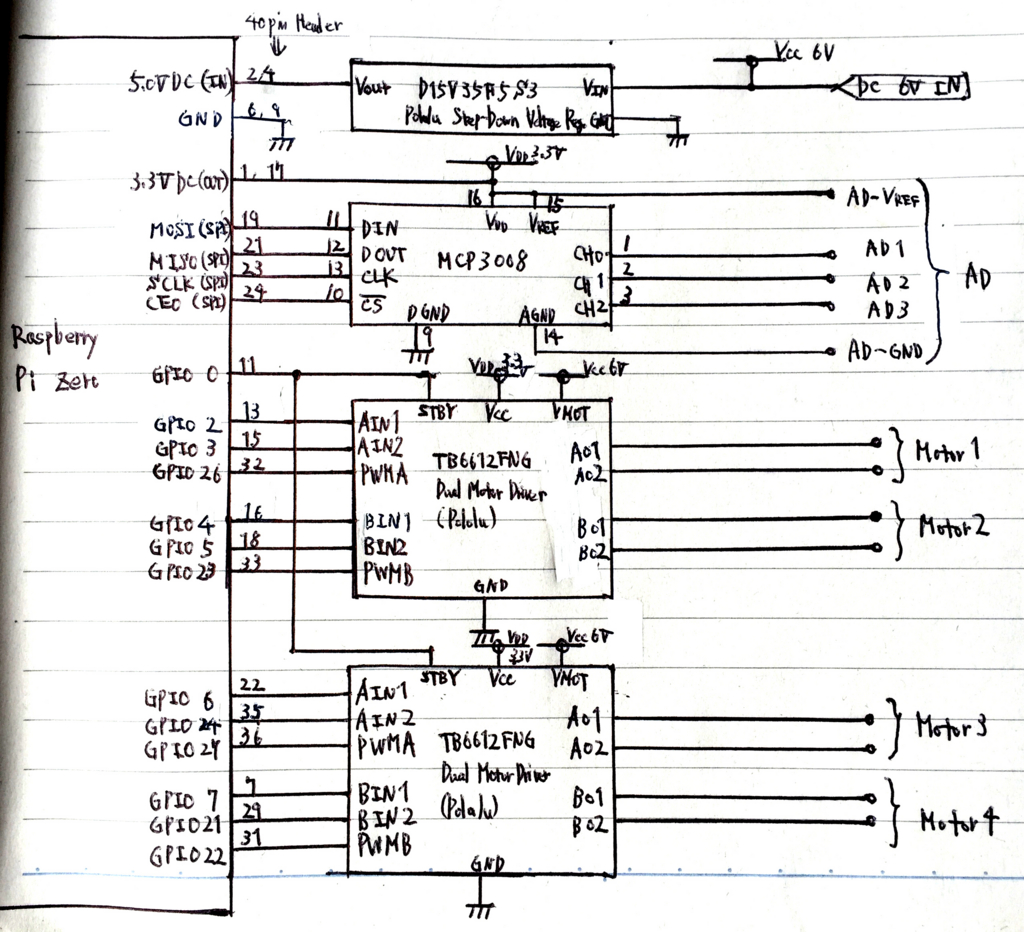 40pin Header
Vcc 6V
5.0V DC (IN) 2,4 Vout D15V35F5S3 VIN DC 6V IN
GND 6, 9 Pololu Step-Down Voltage Reg. GND
VDD 3.3V
3.3V DC(OUT) 1, 17
16 15 AD-VREF
VDD VREF
MOSI (SPI) 19 11 DIN
MISO (SPI) 21 12 DOUT MCP3008 CH0 1 AD1
SCLK (SPI) 23 13 CLK CH1 2 AD2 AD
CE0 (SPI) 24 10 CS CH2 3 AD3
DGND AGND
9 14
AD-GND
Raspberry
Pi Zero
GPIO 0 11 VDD 3.3V Vcc 6V
STBY Vcc VMOT
GPIO 2 13 AIN1
GPIO 3 15 AIN2 AO1 Motor 1
GPIO 26 32 PWMA TB6612FNG AO2
Dual Motor Driver
GPIO 4 16 BIN1 (Pololu) BO1 Motor 2
GPIO 5 18 BIN2 BO2
GPIO 23 33 PWMB
GND
VDD 3.3V Vcc 6V
STBY Vcc VMOT
GPIO 6 22 AIN1
GPIO 24 35 AIN2 AO1 Motor 3
GPIO 27 36 PWMA TB6612FNG AO2
Dual Motor Driver
GPIO 7 7 BIN1 (Pololu) BO1 Motor 4
GPIO 21 29 BIN2 BO2
GPIO 22 31 PWMB
GND